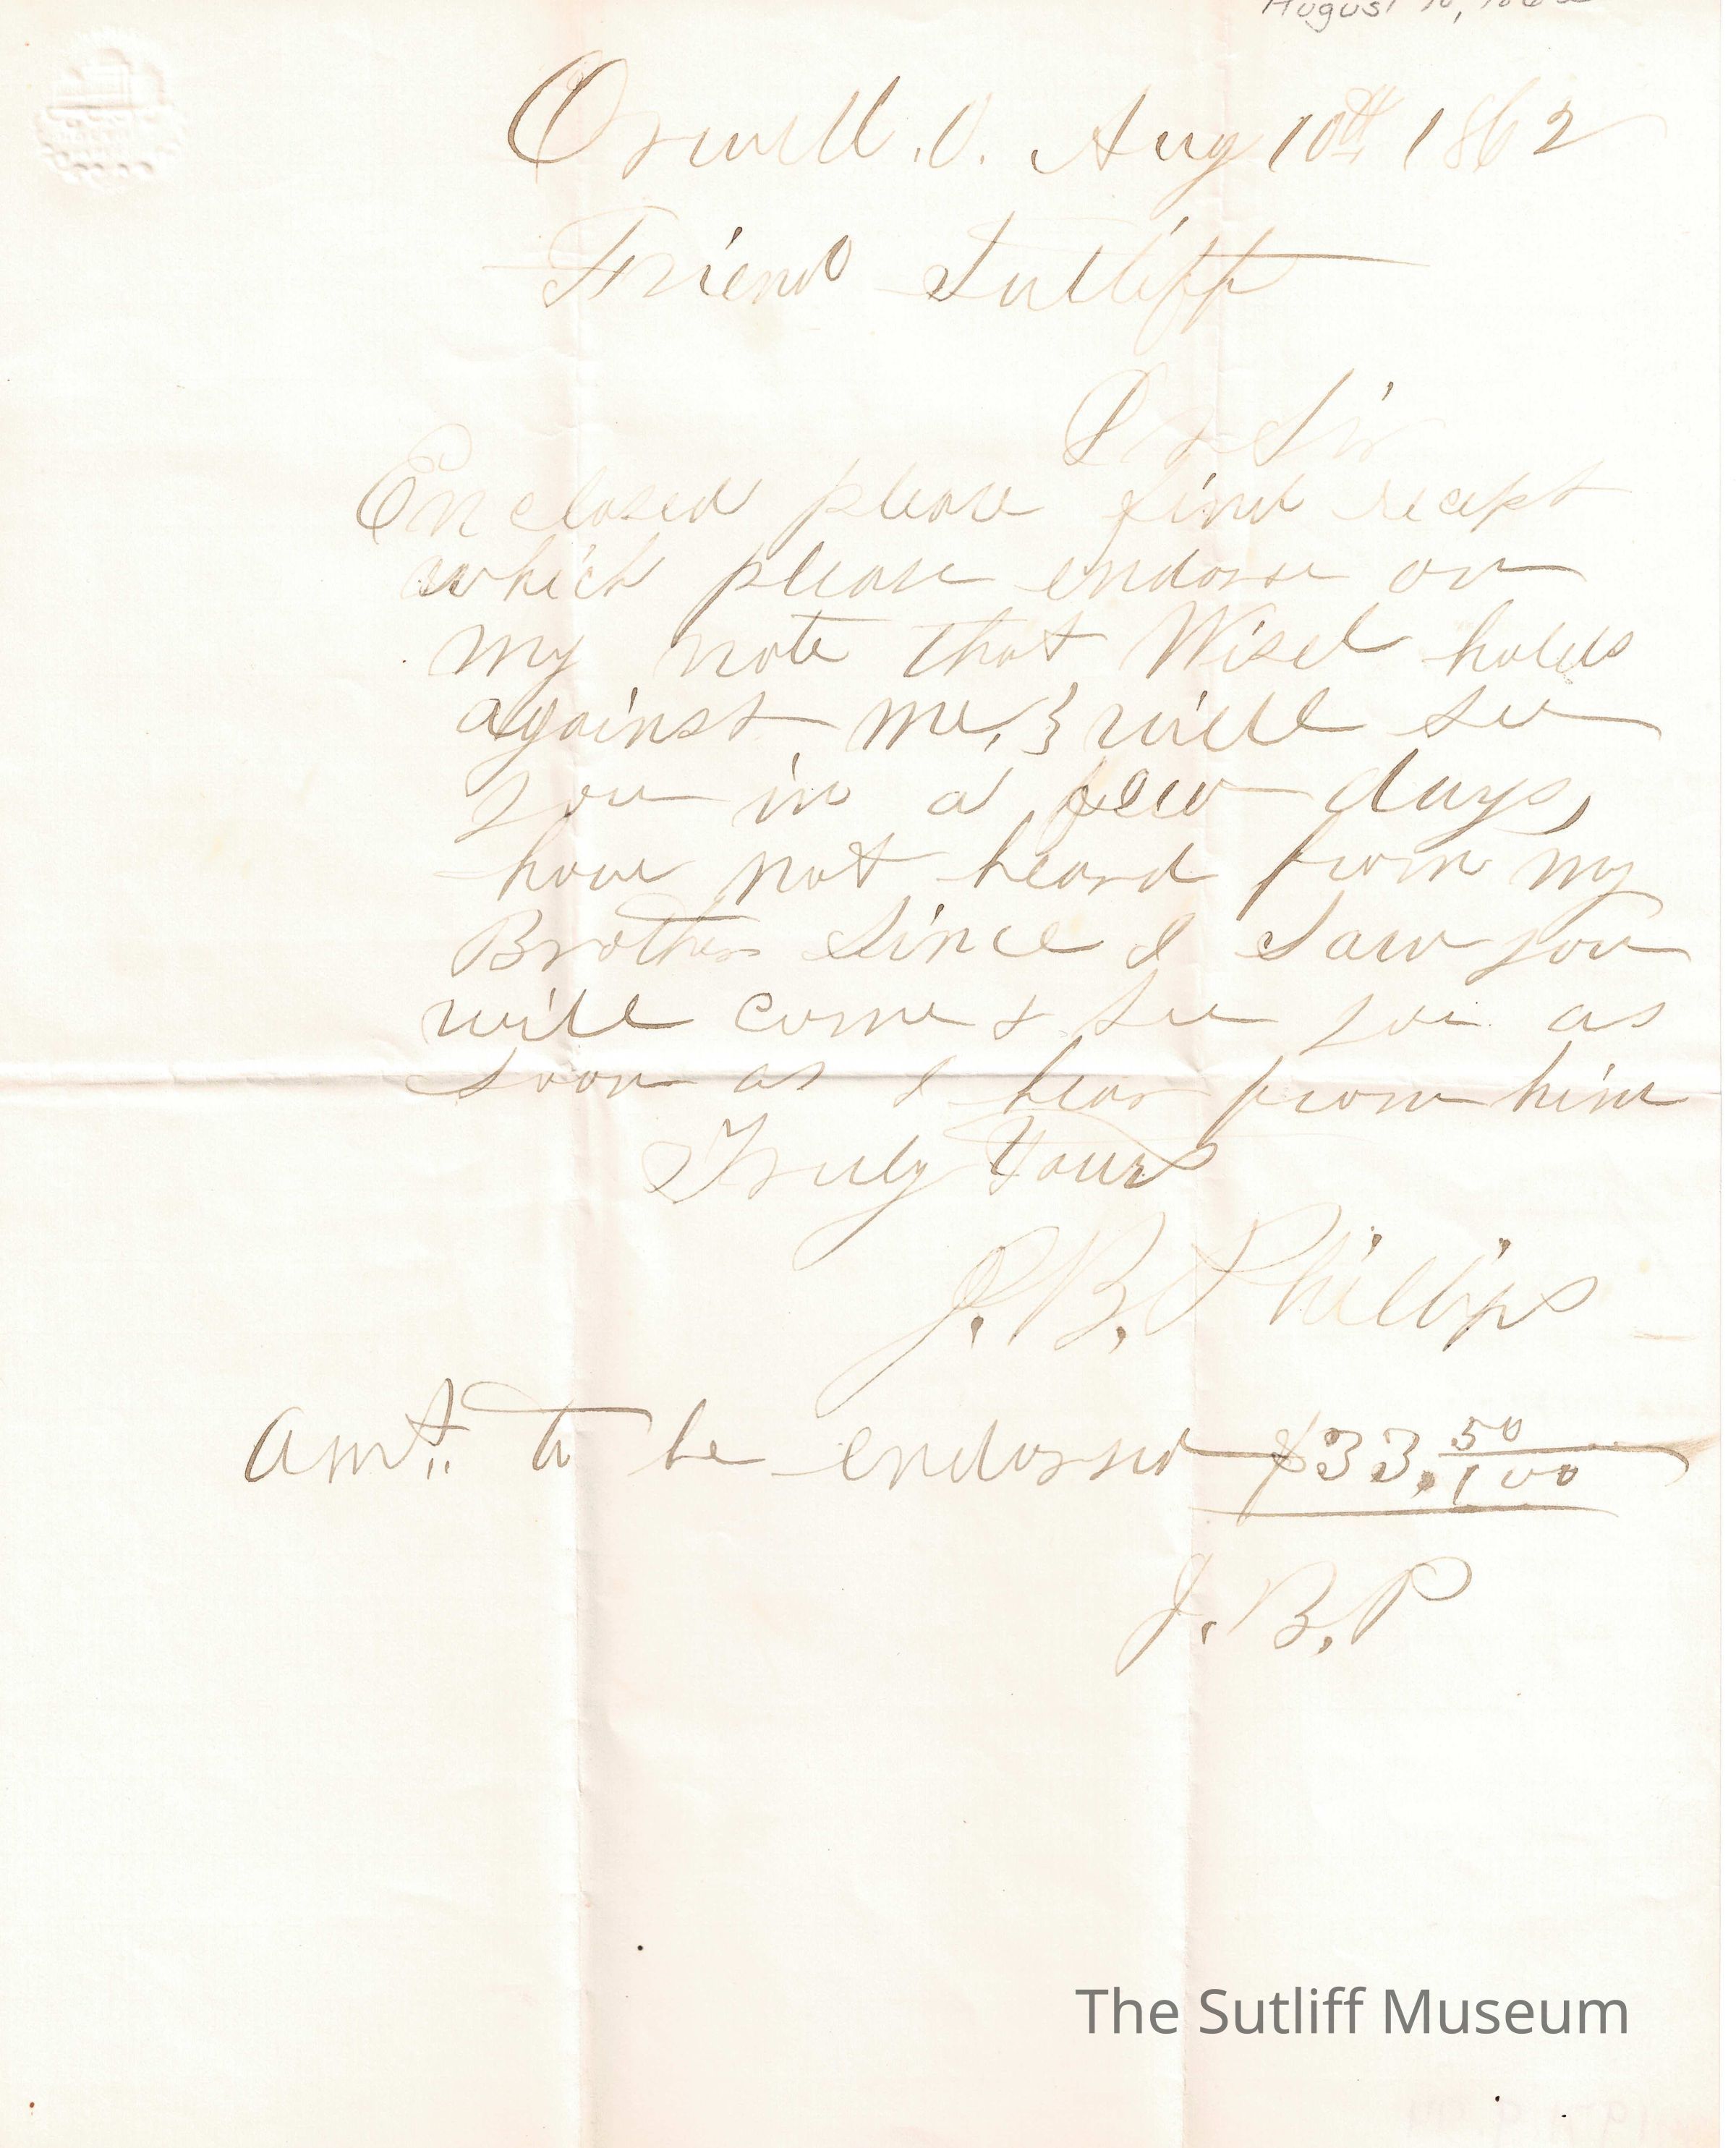 August 10, 1862
Orwell. O. Aug 10th 1862
Friend Sutliff
Dr Sir
Enclosed please find recept
which please endorse on
my note that Wisel holds
against me, & will see
you in a few days,
have not heard from my
Brother Since I Saw you
will come & See you as
Soon as I hear from him
Truly Yours
J. B. Phillips
Amt. to be endorsed $33. 50/100
J. B. P
The Sutliff Museum